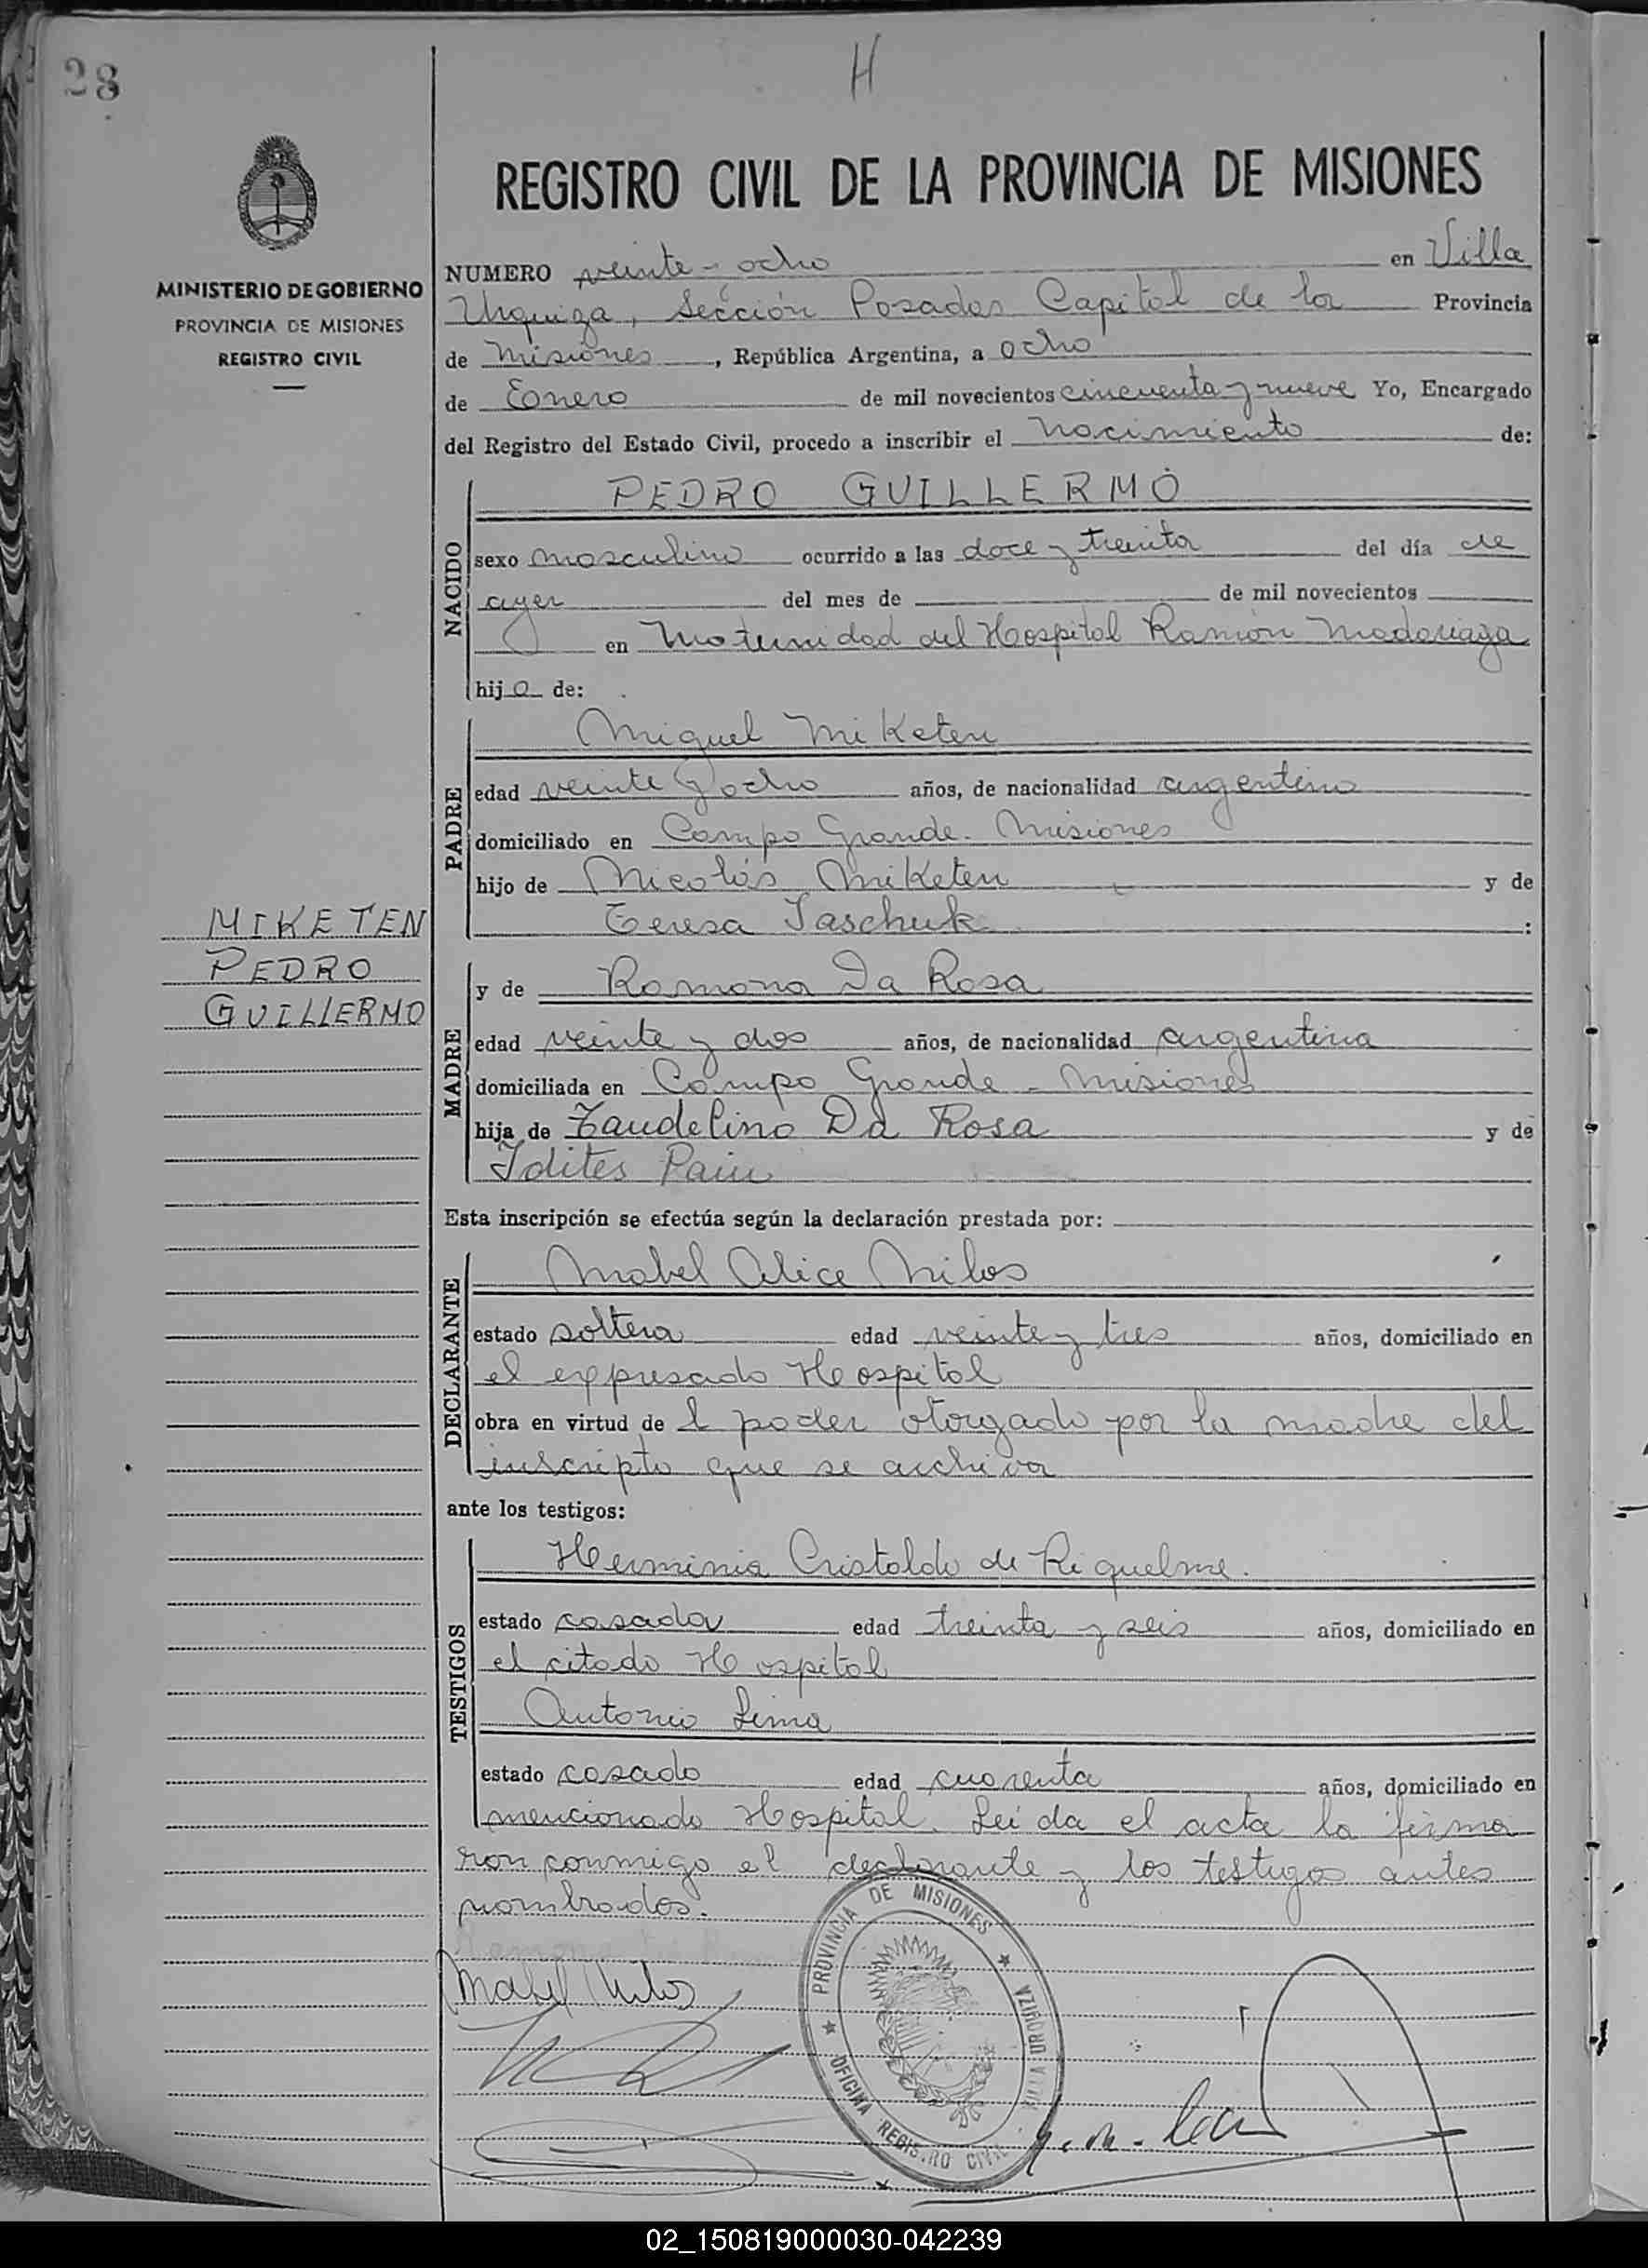 28
H
REGISTRO CIVIL DE LA PROVINCIA DE MISIONES
MINISTERIO DE GOBIERNO
PROVINCIA DE MISIONES
REGISTRO CIVIL
NUMERO veinte-ocho en Villa
Urquiza, Sección Posadas Capital de la Provincia
de Misiones, República Argentina, a ocho
de Enero de mil novecientos cincuenta y nueve Yo, Encargado
del Registro del Estado Civil, procedo a inscribir el nacimiento de:
NACIDO
PEDRO GUILLERMO
sexo masculino ocurrido a las doce y treinta del día de
ayer del mes de de mil novecientos
en Maternidad del Hospital Ramón Madariaga
hijo de:
PADRE
Miguel Miketen
edad veinte y ocho años, de nacionalidad argentino
domiciliado en Campo Grande. Misiones
hijo de Nicolás Miketen y de
Teresa Taschuk :
MIKETEN
PEDRO
GUILLERMO
MADRE
y de Ramona Da Rosa
edad veinte y dos años, de nacionalidad argentina
domiciliada en Campo Grande - Misiones
hija de Da Rosa y de
Idites Pain
Esta inscripción se efectúa según la declaración prestada por:
DECLARANTE
Mabel Alice Milos
estado soltera edad veinte y tres años, domiciliado en
el expresado Hospital
obra en virtud de l poder otorgado por la madre del
inscripto que se archiva
ante los testigos:
TESTIGOS
Herminia Cristaldo de Riquelme.
estado casada edad treinta y seis años, domiciliado en
el citado Hospital
Antonio Lima
estado casado edad cuarenta años, domiciliado en
mencionado Hospital. Leída el acta la firma
ron conmigo el declarante y los testigos antes
nombrados.
Mabel Milos
PROVINCIA DE MISIONES ★ VILLA URQUIZA
★ OFICINA REGISTRO CIVIL
02_150819000030-042239